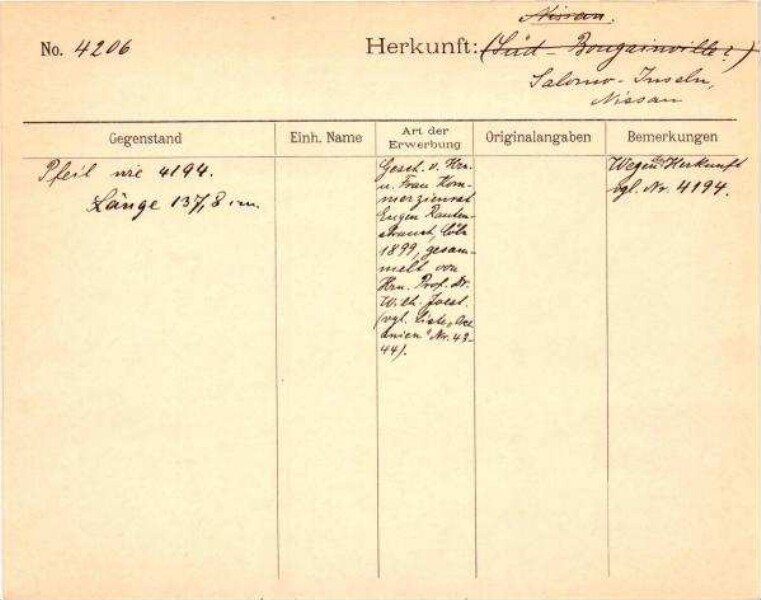 Nissan.
No. 4206 Herkunft: (Süd-Bougainville?)
Salomo-Inseln,
Nissan
Gegenstand
Einh. Name
Art der
Erwerbung
Originalangaben
Bemerkungen
Pfeil wie 4194.
Länge 137,8 cm.
Gesch. v. Hrn.
u. Frau Kom-
merzienrat
Eugen Rauten-
strauch, Cöln
1899, gesam-
melt von
Hrn. Prof. Dr.
Wilh. Joest.
(vgl. Liste „Oze
anien" Nr. 43-
44).
Wegen der Herkunft
vgl. Nr. 4194.